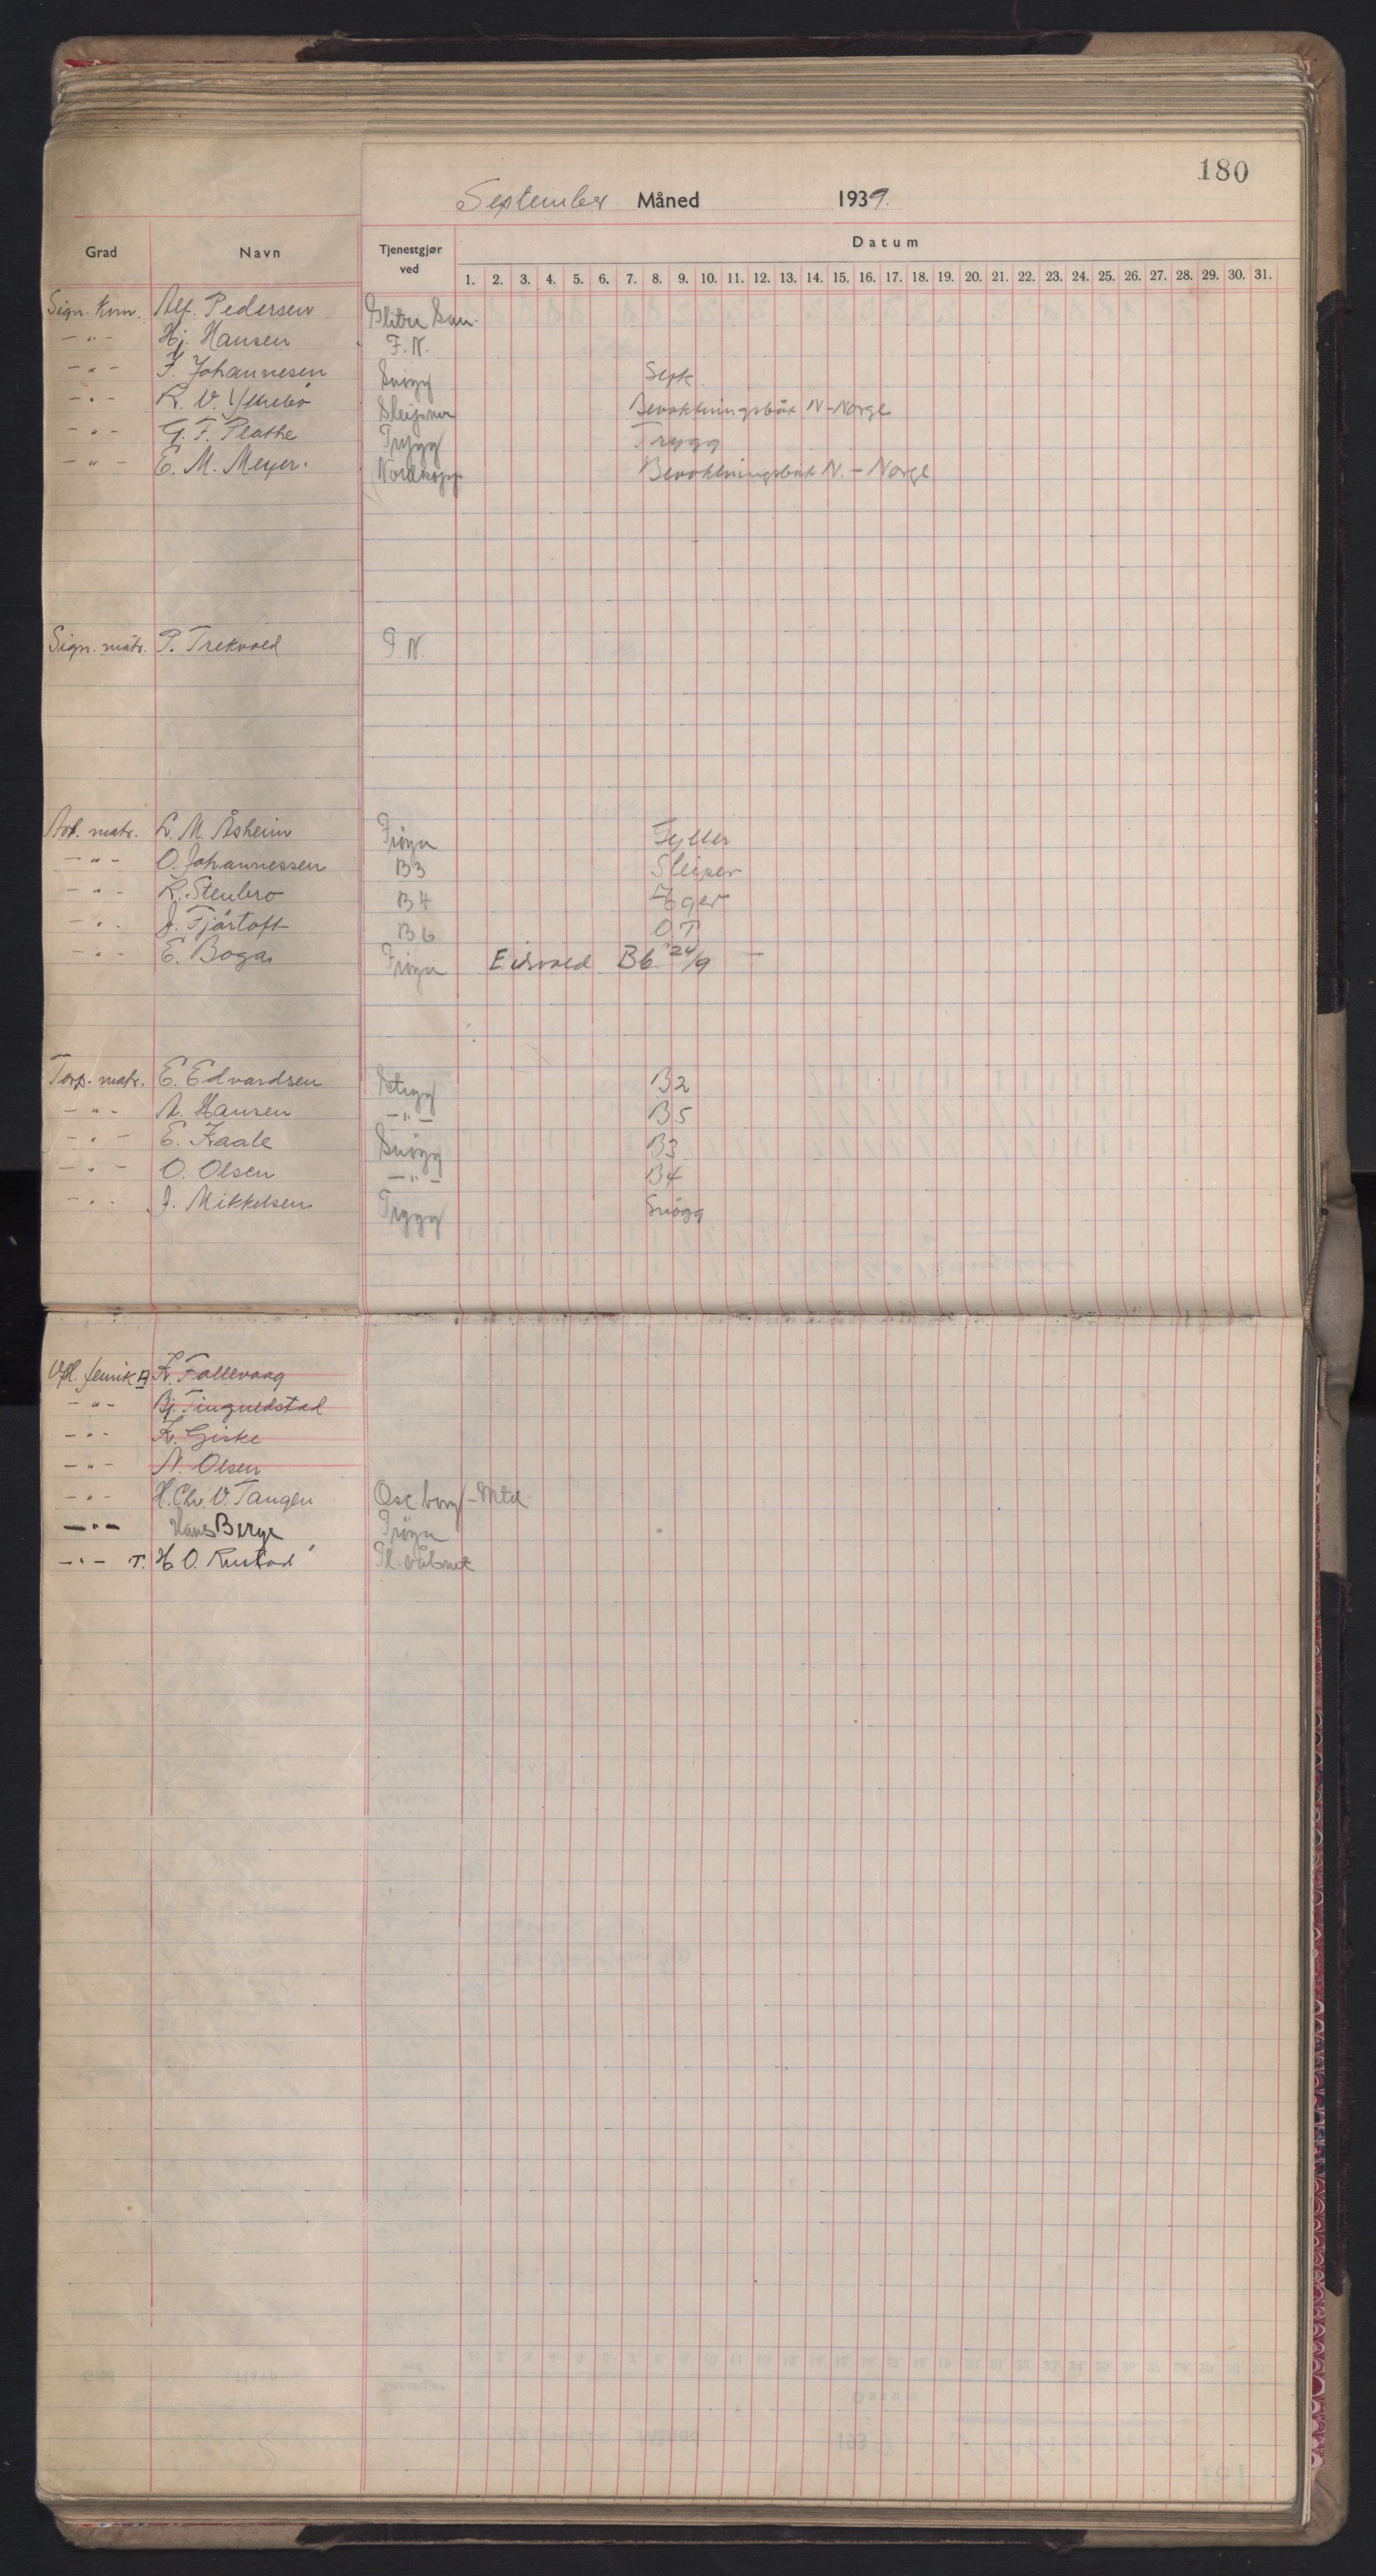 180
September Måned 1939.
Grad Navn Tjenestgjør ved Datum
1. 2. 3. 4. 5. 6. 7. 8. 9. 10. 11. 12. 13. 14. 15. 16. 17. 18. 19. 20. 21. 22. 23. 24. 25. 26. 27. 28. 29. 30. 31.
Sign. kvm. Alf. Pedersen
-"- Hj. Hansen F. N.
-"- F. Johannesen Snögg Sepk.
-"- R. V. Sleipner Bevoktningsbåt N-Norge
-"- G. F. Plathe Trygg Trygg
-"- E. M. Meyer. Nordkapp Bevoktningsbåt N. - Norge
Sign. matr. P. Trekvold F. N.
Art. matr. L. M. Åsheim Fröya Fyller
-"- O. Johannessen B3 Sleipner
-"- K. Stenbro B4 Æger
-"- J. Fjärtoft B6 OT
-"- E. Boga Fröya Eidsvold B6 24/9 -
Torp. matr. E. Edvardsen Stegg B2
-"- A. Hansen -"- B5
-"- E. Kaale Snögg B3
-"- O. Olsen -"- B4
-"- J. Mikkelsen Trygg Snögg
Vpl. fenrik A K. Fallevaag
-"- Bj. Tingvedstad
-"- K. Giske
-"- N. Olsen
-"- H. Chr. V. Tangen Osc.borg-Mtd.
-"- Hans Berge Fröya
-"- T. H. O. Rustad